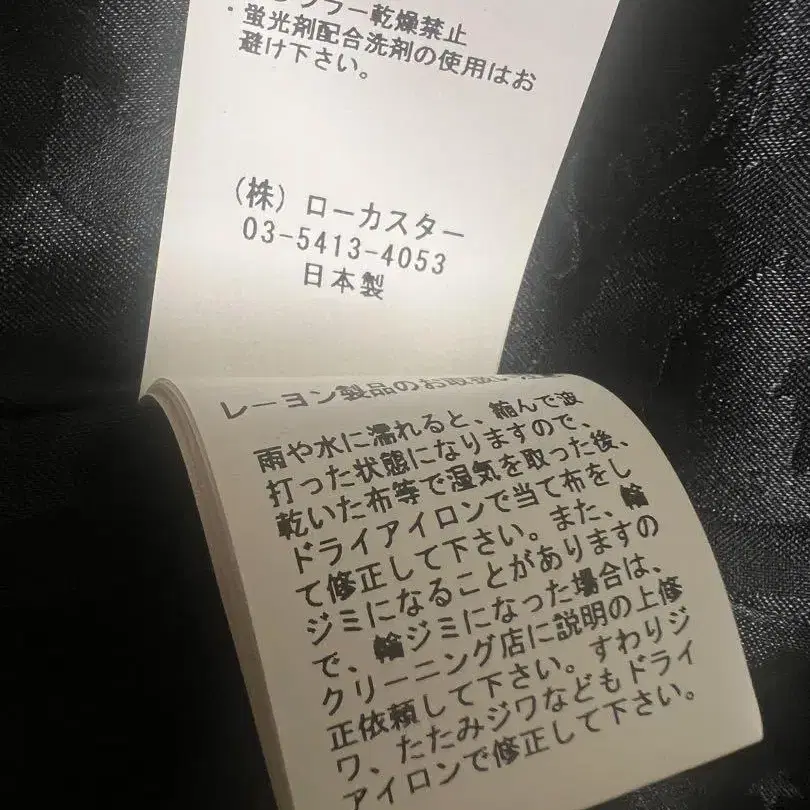 ンブラー乾燥禁止
・蛍光剤配合洗剤の使用はお
避け下さい。
(株) ローカスター
03-5413-4053
日本製
レーヨン製品のお取扱い
雨や水に濡れると、縮んで波
打った状態になりますので、
乾いた布等で湿気を取った後、
ドライアイロンで当て布をし
て修正して下さい。また、輪
ジミになることがありますの
で、輪ジミになった場合は、
クリーニング店に説明の上修
正依頼して下さい。すわりジ
ワ、たたみジワなどもドライ
アイロンで修正して下さい。